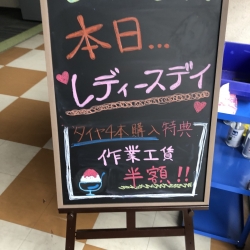 本日...
レディースデイ
タイヤ4本購入特典
作業工賃
半額!!